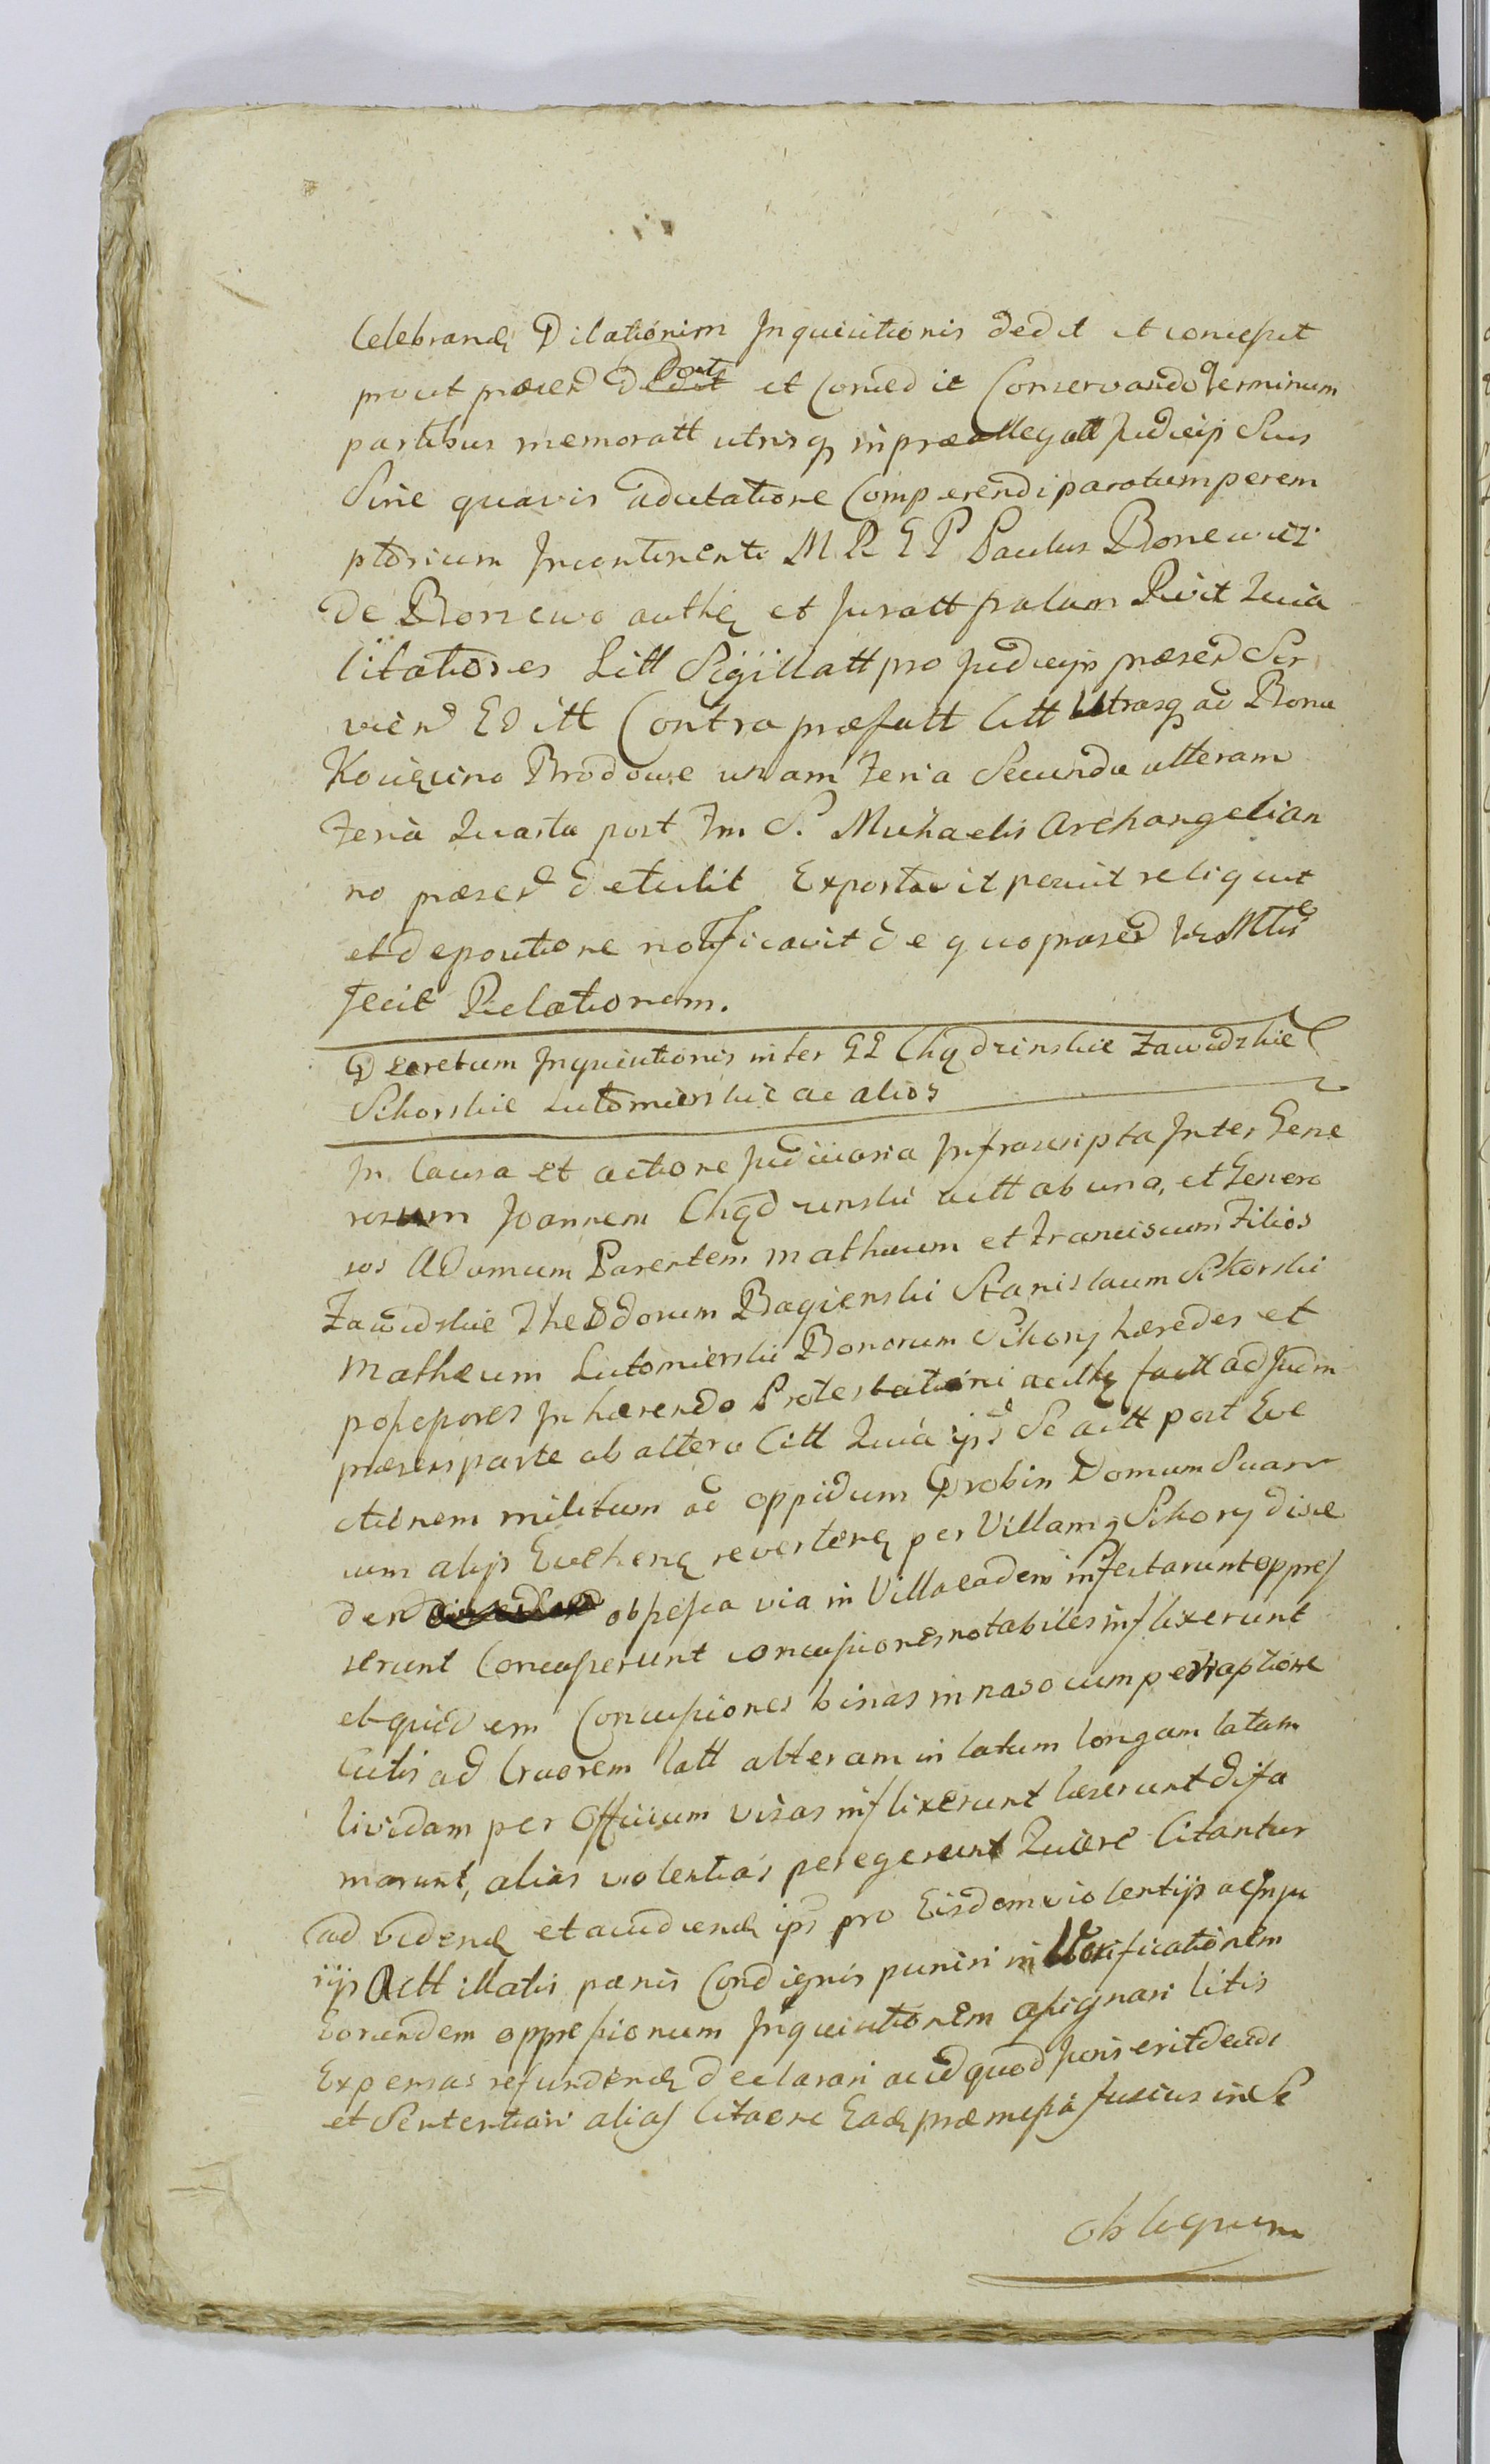 Celebrandę Dilationem Inquisitionis dedit et concessit
prout præsen dat et Concedit Conservando Terminum
partibus memoratt utrisq in præallegatt Judicijs Suis
Sine quavis adcitatione Comperendi paratum perem
ptorium Incontinenti M R G P Paulus Bonewicz
de Bonewo authę et Juratt palam Rvit Quia
Citationes Litt Sigillatt pro Judicijs præsen Ser
vien Editt Contra præfatt Citt Utrasq ad Bona
Brodowe unam Feria Secunda alteram
Feria Quarta post Fm S. Michaelis Archangeli an
no præsen detulit Exportavit posuit reliquit
et de positione notificavit de quo præsen
fecit Relationem.
Decretum Inquisitionis inter GG Chądzinskie Zawidzkie
Sikorskie Lutomierskie ac alios
In Causa et actione Judiciaria Infrascripta Inter Gene
rosum Joannem Chądzinski actt ab una, et Genero
sos Adamum Parentem Mathæum et Franciscum Filios
Zawidzkie Theodorum Bagienski Stanislaum Sikorski
Mathæum Lutomierski Bonorum Sikory hæredes et
possessores Inhærendo Protestationi acthę factt ad Judm
præsens parte ab altera Citt Quia ijd Se actt post Eve
ctionem militum ad oppidum Drobin Domum Suam
cum alijs revertenę per Villam Sikory disce
den obsessa via in Villa eadem infectarunt oppres
serunt Concusserunt concussiones notabiles inflixerunt
et quidem Concussiones binas in naso cum pertraptione
Cutis ad Cruorem latt alteram in latum longam latam
lividam per Officium visas inflixerunt læserunt difa
marunt, alias violentias peregerunt Quare Citantur
ad videnę et audienę ips pro Eisdem violentijs ac Inju
rijs Actt illatis pænis Condignis puniri in Verificationem
Eorundem oppressionum Inquisitionem assignari litis
Expensas refundenę declarari ac id quod Juris erit decidi
et Sententiari alias Citaone Eadę præmissa fusius in Se
obloquum